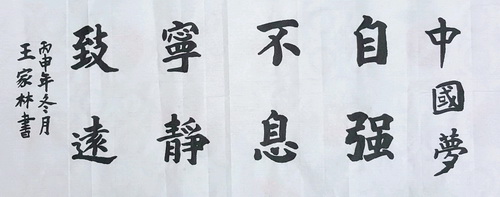 中國夢
自强
不息
寧靜
致遠
丙申年冬月
王家林書